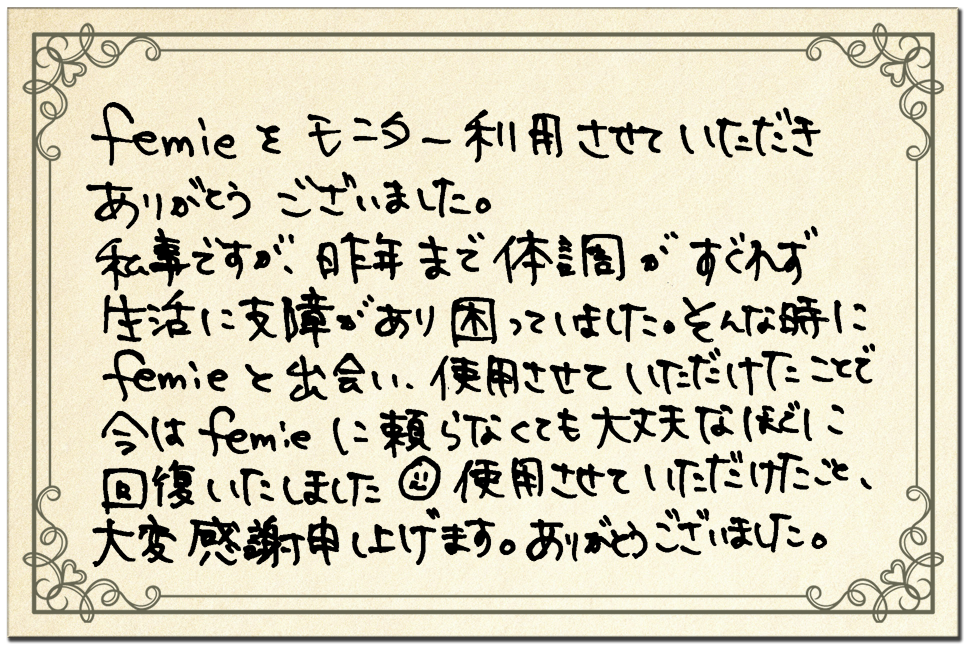 femieをモニター利用させていただき
ありがとうございました。
私事ですが、昨年まで体調がすぐれず
生活に支障があり困っていました。そんな時に
femieと出会い、使用させていただけたことで
今はfemieに頼らなくても大丈夫なほどに
回復いたしました☺使用させていただけたこと、
大変感謝申し上げます。ありがとうございました。